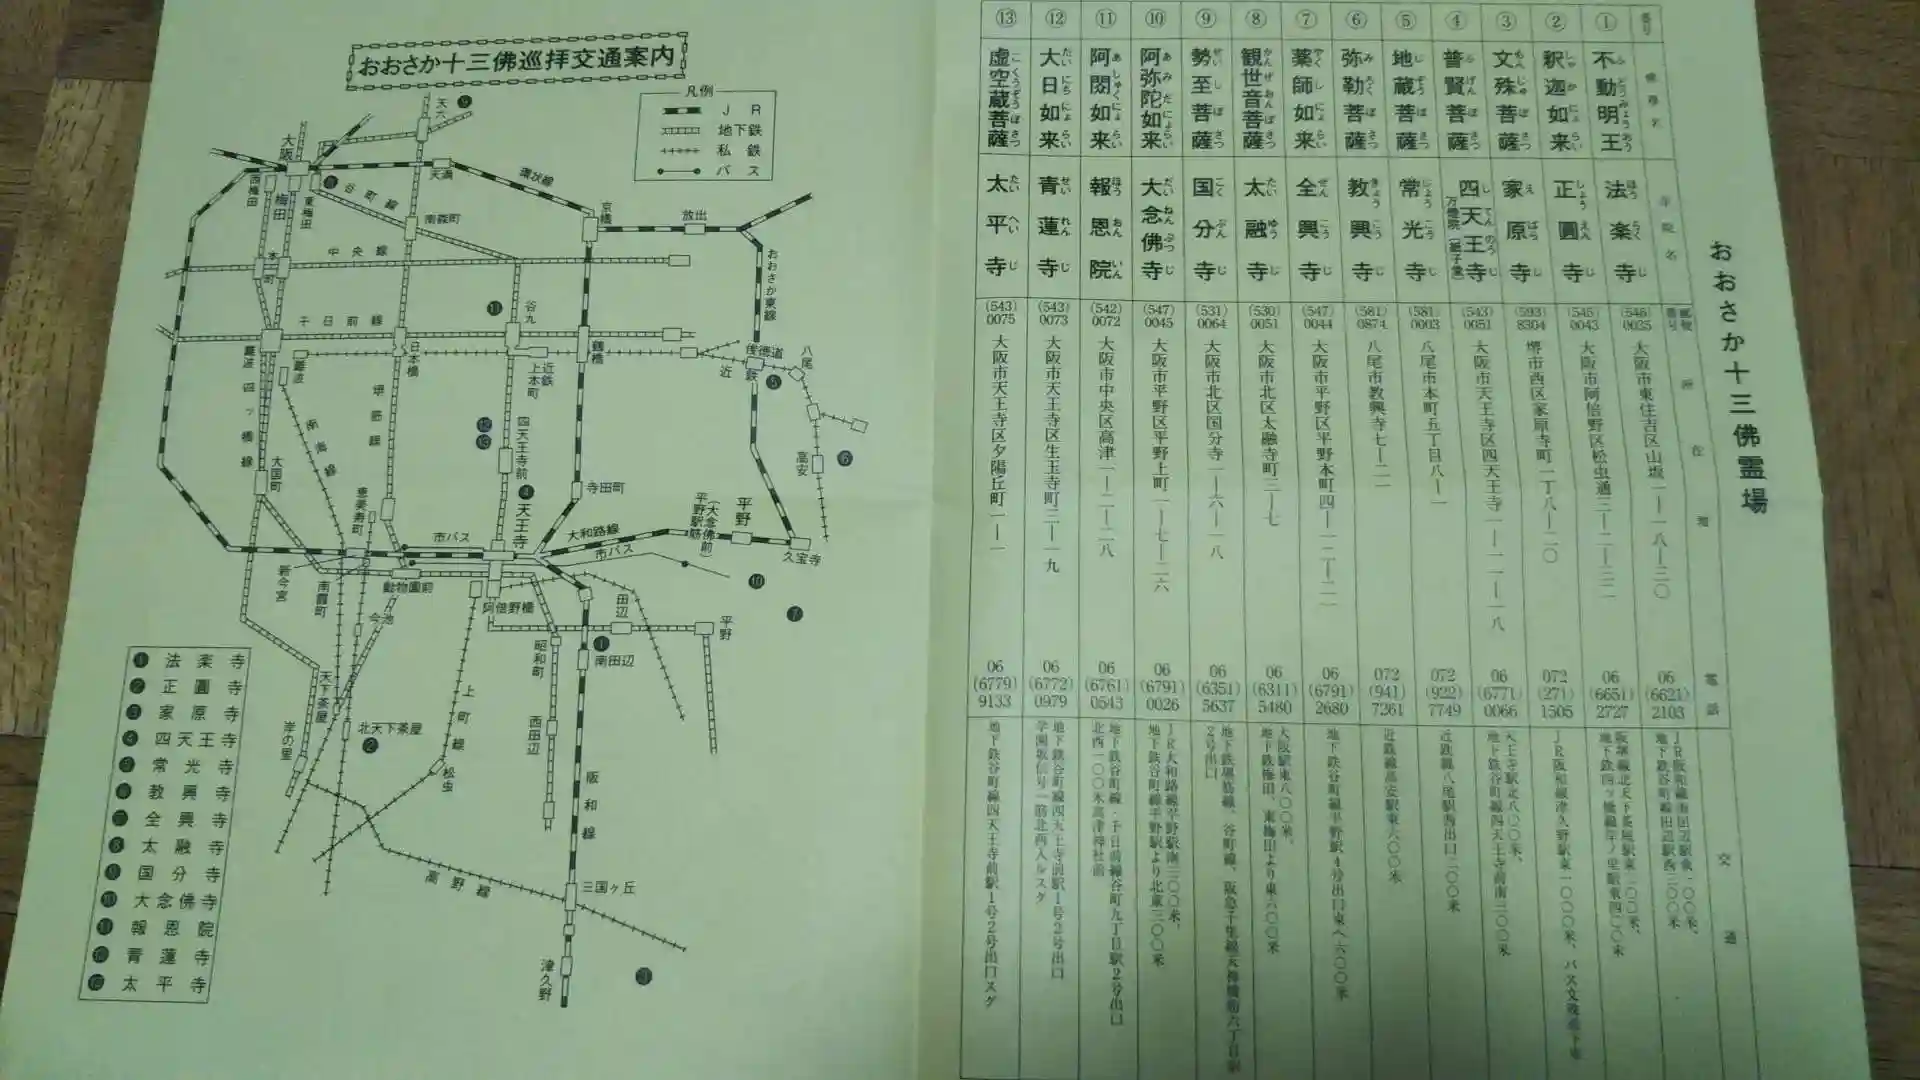 おおさか十三佛霊場
番号
①
②
③
④
⑤
⑥
⑦
⑧
⑨
⑩
⑪
⑫
⑬
不動明王
釈迦如来
文殊菩薩
普賢菩薩
地蔵菩薩
弥勒菩薩
薬師如来
観世音菩薩
勢至菩薩
阿弥陀如来
阿閦如来
大日如来
虚空蔵菩薩
寺院名
法楽寺
正圓寺
家原寺
四天王寺
常光寺
教興寺
全興寺
太融寺
国分寺
大念佛寺
報恩院
青蓮寺
太平寺
郵便番号
(546) 0035
(545) 0043
(593) 8304
(543) 0051
(581) 0003
(581) 0874
(547) 0044
(530) 0051
(531) 0064
(547) 0045
(542) 0072
(543) 0073
(543) 0075
所在地
大阪市東住吉区山坂一ー一八ー三〇
大阪市阿倍野区松虫通三ー二ー三二
堺市西区家原寺町一丁八ー二〇
大阪市天王寺区四天王寺一ー一一ー一八
八尾市本町五丁目八ー一
八尾市教興寺七ー二一
大阪市平野区平野本町四ー一二ー二一
大阪市北区太融寺町三ー七
大阪市北区国分寺一ー六ー一八
大阪市平野区平野上町一ー七ー二六
大阪市中央区高津一ー二ー二八
大阪市天王寺区生玉寺町三ー一九
大阪市天王寺区夕陽丘町一ー一
電話
06 (6621) 2103
06 (6651) 2727
072 (271) 1505
06 (6771) 0066
072 (922) 7749
072 (941) 7261
06 (6791) 2680
06 (6311) 5480
06 (6351) 5637
06 (6791) 0026
06 (6761) 0543
06 (6772) 0979
06 (6779) 9133
交通
天王寺駅北八〇〇米、
地下鉄谷町線四天王寺前南三〇〇米
近鉄線八尾駅西出口二〇〇米
近鉄線高安駅東六〇〇米
地下鉄谷町線平野駅4号出口東へ六〇〇米
大阪駅東八〇〇米、
地下鉄梅田、東梅田より東六〇〇米
JR大和路線平野駅南三〇〇米、
地下鉄谷町線平野駅より北東三〇〇米
地下鉄谷町線・千日前線谷町九丁目駅2号出口
北西一〇〇米高津神社前
地下鉄谷町線四天王寺前駅1号2号出口
地下鉄谷町線四天王寺前駅1号2号出口スグ
おおさか十三佛巡拝交通案内
凡例
JR
地下鉄
私鉄
バス
天六
大阪
西梅田
梅田
東梅田
谷町線
天満
環状線
南森町
京橋
放出
おおさか東線
本町
中央線
千日前線
谷九
難波
難波
日本橋
上本町
近鉄
鶴橋
俊徳道
近鉄
八尾
高安
四ツ橋線
南海線
堺筋線
四天王寺前
大国町
恵美寿町
天王寺
寺田町
大和路線
平野駅筋
(大念佛前)
平野
久宝寺
市バス
市バス
新今宮
南霞町
動物園前
今池
阿倍野橋
田辺
平野
昭和町
南田辺
天下茶屋
岸の里
北天下茶屋
上町線
松虫
西田辺
阪和線
高野線
三国ヶ丘
津久野
❶ 法楽寺
❷ 正圓寺
❸ 家原寺
❹ 四天王寺
❺ 常光寺
❻ 教興寺
❼ 全興寺
❽ 太融寺
❾ 国分寺
❿ 大念佛寺
⓫ 報恩院
⓬ 青蓮寺
⓭ 太平寺